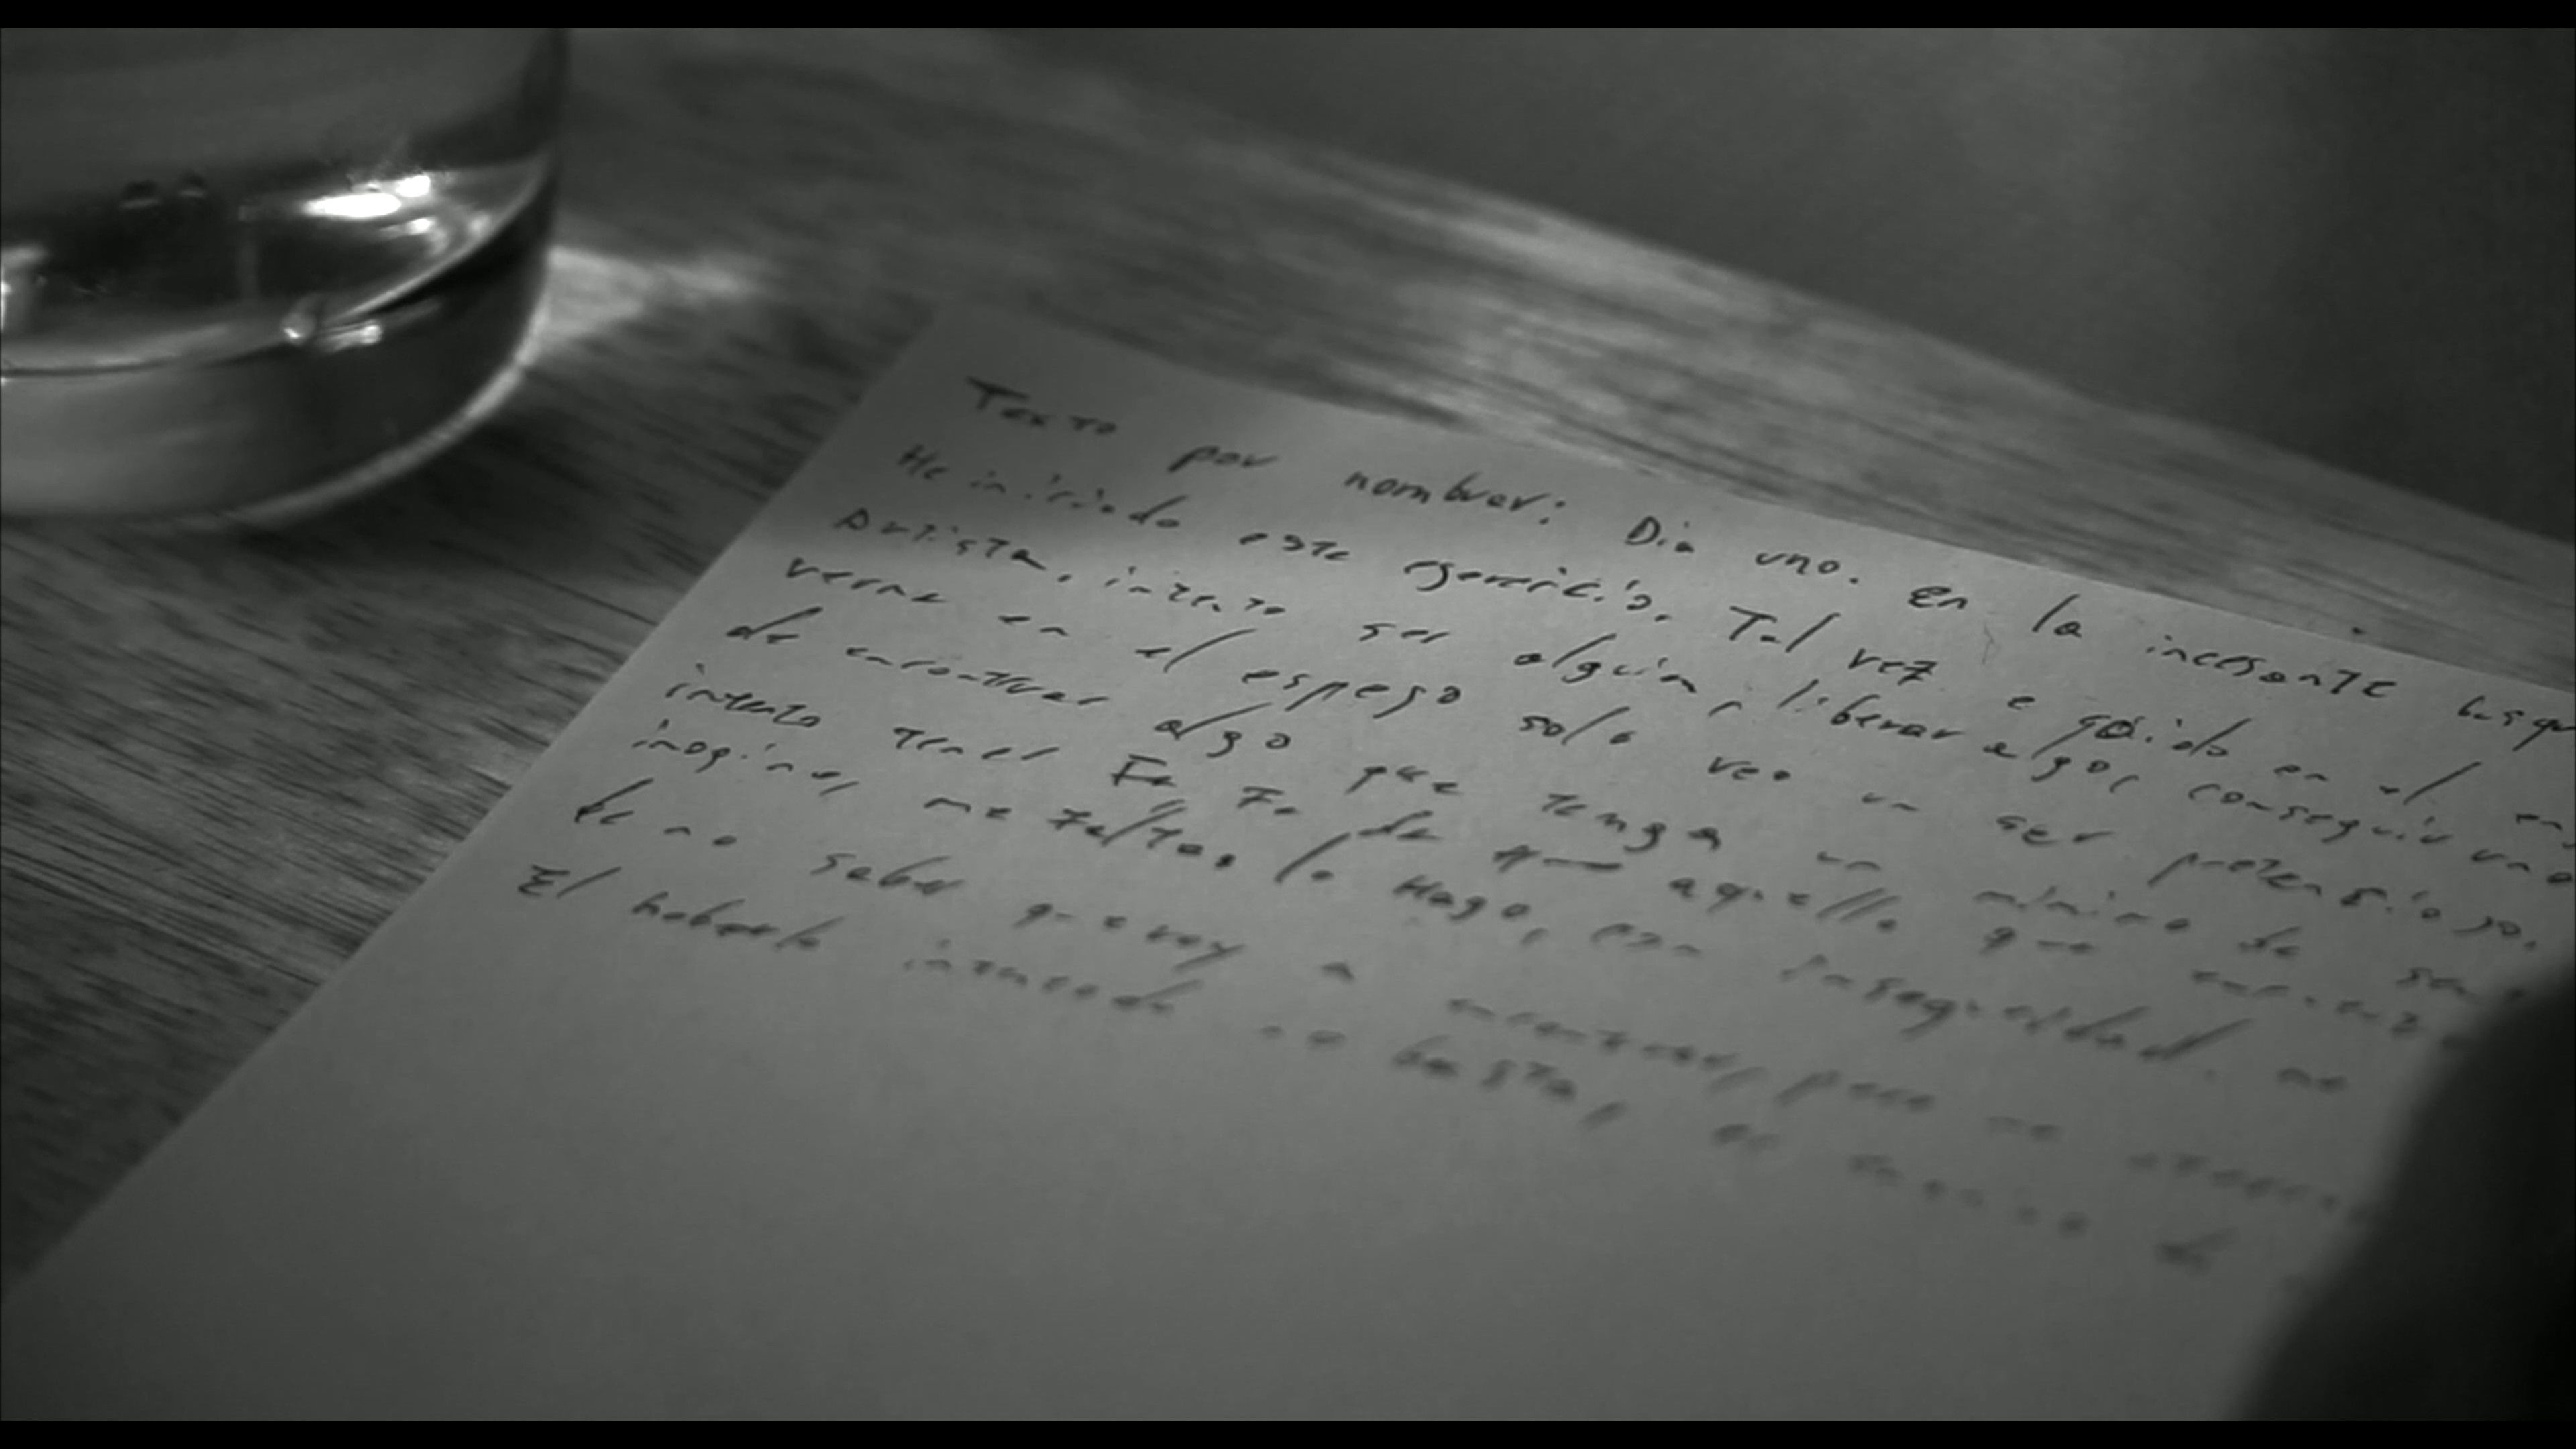 Texto por nombrer: Dia uno. En la incesante busqu
He iniciado este egercicio. Tal vez e qaido en el en
Artista, intento ser alguien, liberar algo, conseguir una
verme en el espego solo veo un ser pretensioso.
de encontrar algo que tenga un minimo de sen
intento tener Fe Fe de aquello que
imagino, me falta, lo Hago, con inseguridad. no
de no saber que voy a encontrar, pero no
El haberlo intentado no basta, de